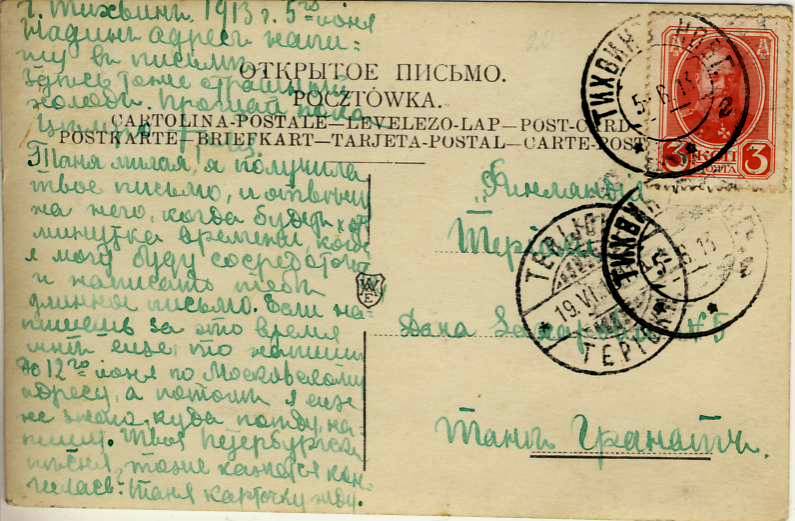 г. Тихвинъ 1913 г. 5го іюня
Надинъ адресъ напи=
шу въ письмѣ
Здѣсь тоже страшный
холодъ. Прощай пока
Цѣлую
ОТКРЫТОЕ ПИСЬМО.
POCZTÓWKA.
CARTOLINA-POSTALE—LEVELEZO-LAP—POST-CARD
POSTKARTE—BRIEFKART—TARJETA-POSTAL—CARTE-POST
Таня милая, я получила
твое письмо, и отвѣчу
на него, когда будетъ
минутка времени, когда
я могу буду сосредоточ
и написать тебѣ
длинное письмо. Если на=
пишешь за это время
мнѣ еще, то напиши
до 12го іюня по Московскому
адресу, а потомъ я еще
не знаю, куда поѣду, на=
пишу. Твоя Петербургская
пѣсня, тоже кажется кон=
чилась. Таня карточку жду.
ТИХВИНЪ НОВГ.
5 6 13
3 КОП 3
ПОЧТА
Финляндія
Теріоки
TERIJOKI
19.VI.1
ТЕРІОКИ
ТИХВИНЪ
6.13
Дача № 5
WE
Танѣ Гранатъ.